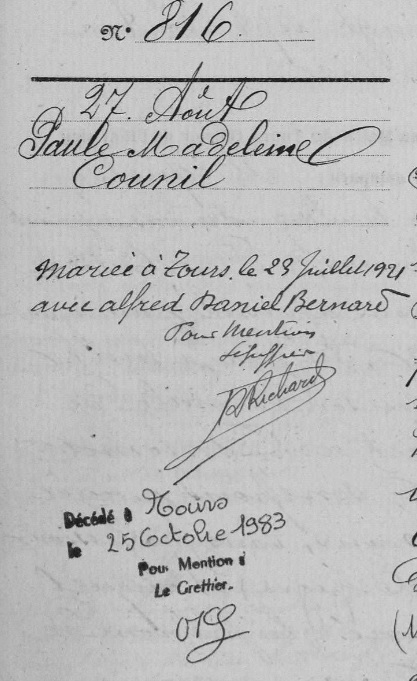 N° 816.
27. Août
Paule Madeleine
Counil
Mariée à Tours, le 23 Juillet 1921
avec Alfred Daniel Bernard
Pour Mention
Le Greffier
Richard
Décédé à Tours
le 25 Octobre 1983
Pour Mention
Le Greffier.